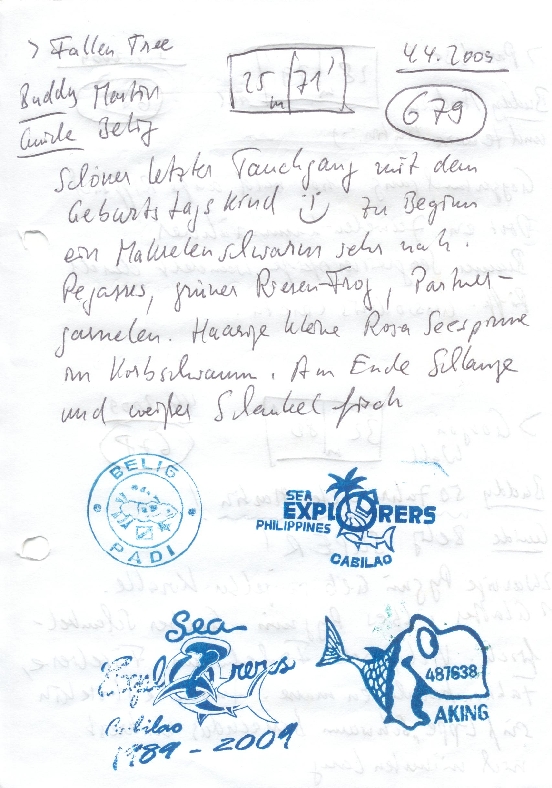 > Fallen Tree
25 m 71'
4.4.2009
679
Buddy Martin
Guide Belig
Schöner letzter Tauchgang mit dem
Geburtstagskind zu Beginn
ein Makrelenschwarm sehr nah.
Pegasus, grüner Riesen-Frog, Partner-
garnelen. Haarige kleine Rosa Seespinne
im Korbschwamm. Am Ende Schlange
und weißer Schaukelfisch
BELIG
PADI
SEA
EXPLORERS
PHILIPPINES
CABILAO
Sea
Explorers
Cabilao
1989 - 2009
487638
AKING